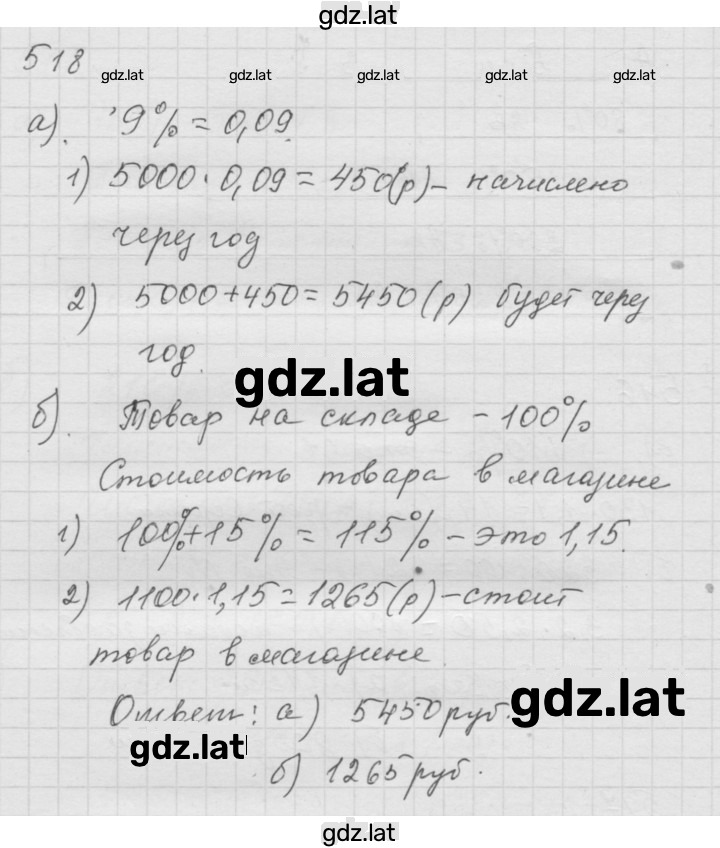 gdz.lat
518
gdz.lat gdz.lat gdz.lat gdz.lat gdz.lat
а). 9% = 0,09.
1) 5000 · 0,09 = 450(р) - начислено
через год
2) 5000 + 450 = 5450(р) будет через
год.
gdz.lat
б). Товар на складе - 100%
Стоимость товара в магазине
1) 100% + 15% = 115% - это 1,15.
2) 1100 · 1,15 = 1265(р) - стоит
товар в магазине
gdz.lat
Ответ: а) 5450 руб.
gdz.lat
б) 1265 руб.
gdz.lat